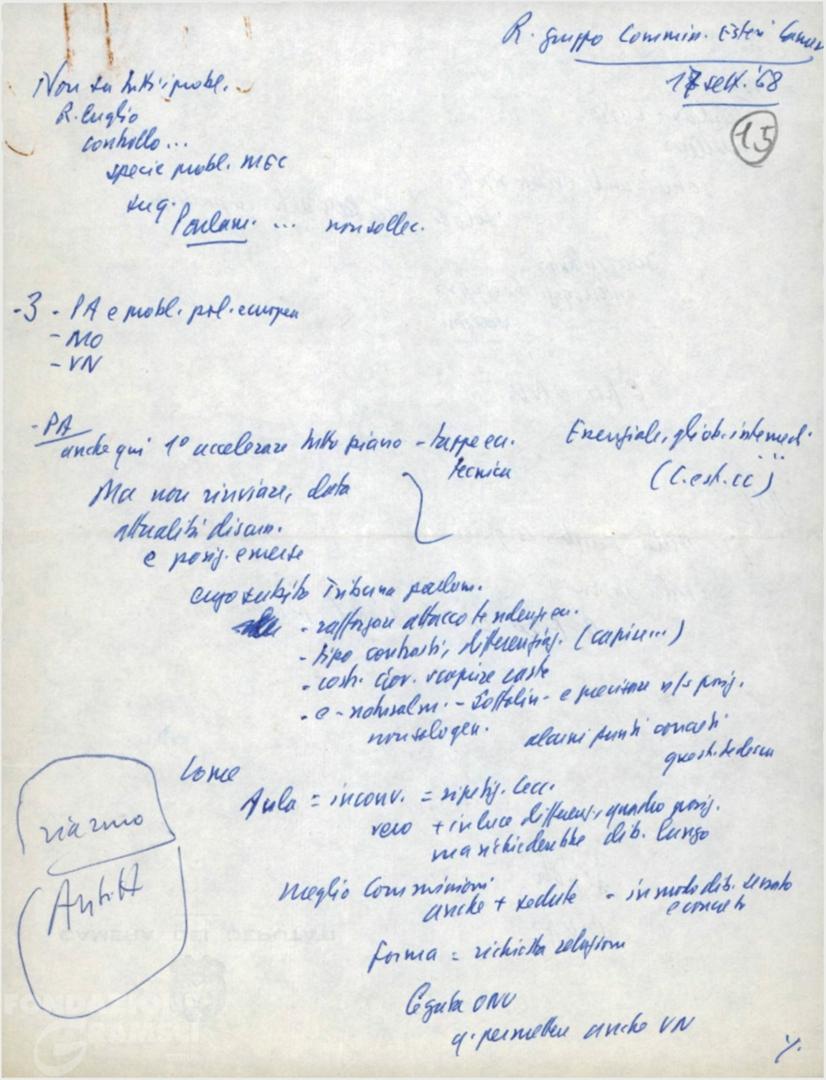 R. gruppo Commiss. Esteri Camera
17 sett. '68
15
Non su tutti i probl.
R. luglio
controllo...
specie probl. MEC
sug.
Parlam. ... non sollec.
-3 - PA e probl. pol. europea
- MO
- VN
- PA
anche qui 1° accelerare tutto piano - tappe
tecnica
Essenziale, gli ob. intermed.
...
Ma non rinviare, data
attualità discuss.
e posiz. emerse
subito Tribuna parlam.
- rafforzare attacco
- tipo contrasti, differenziaz. (capire...)
- costr. Gov. scoprire carte
- e - naturalm. - sottolin. e precisare n/s posiz.
non slogan. alcuni punti concreti
quest. tedesca
Come
Aula = inconv. = ripetiz. Lecc.
vero + in luce differenz, quadro posiz.
ma richiederebbe dib. lungo
riarmo
Meglio Commissioni
anche + sedute - in modo dib. serrato
e concreto
forma = richiesta relazioni
legata ONU
q. permettere anche VN
%.
CAMERA DEI DEPUTATI
FONDAZIONE
Gramsci